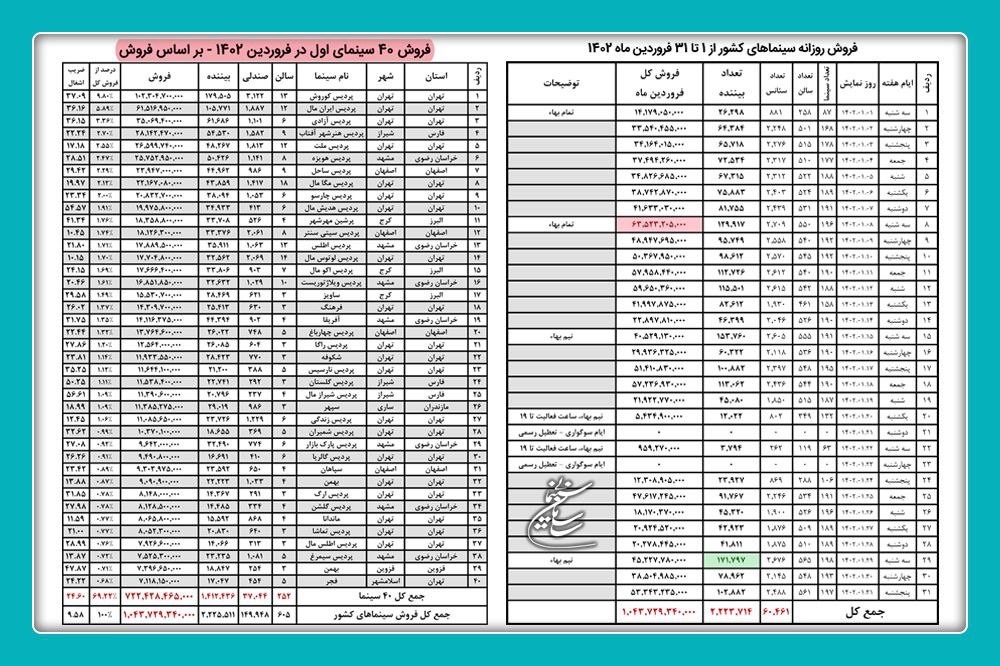 فروش روزانه سینماهای کشور از ۱ تا ۳۱ فروردین ماه ۱۴۰۲
ردیف ایام هفته روز نمایش تعداد سینما تعداد سالن تعداد سئانس تعداد بیننده فروش کل فروردین ماه توضیحات
۱ سه شنبه ۱۴۰۲.۰۱.۰۱ ۸۷ ۲۵۸ ۸۸۱ ۲۶,۲۹۸ ۱۴,۱۷۹,۰۵۰,۰۰۰ تمام بهاء
۲ چهارشنبه ۱۴۰۲.۰۱.۰۲ ۱۶۸ ۵۰۱ ۲,۲۴۸ ۶۴,۳۸۴ ۳۳,۵۴۰,۴۵۵,۰۰۰
۳ پنجشنبه ۱۴۰۲.۰۱.۰۳ ۱۷۸ ۵۱۵ ۲,۲۷۶ ۶۵,۷۱۸ ۳۴,۱۶۴,۰۱۵,۰۰۰
۴ جمعه ۱۴۰۲.۰۱.۰۴ ۱۷۷ ۵۱۰ ۲,۳۱۷ ۷۲,۵۳۴ ۳۷,۴۹۴,۲۶۰,۰۰۰
۵ شنبه ۱۴۰۲.۰۱.۰۵ ۱۸۸ ۵۲۲ ۲,۳۱۲ ۶۷,۳۱۵ ۳۴,۸۲۶,۶۸۵,۰۰۰
۶ یکشنبه ۱۴۰۲.۰۱.۰۶ ۱۸۹ ۵۲۴ ۲,۴۰۳ ۷۵,۸۸۳ ۳۸,۷۴۲,۸۷۰,۰۰۰
۷ دوشنبه ۱۴۰۲.۰۱.۰۷ ۱۹۱ ۵۳۱ ۲,۴۳۹ ۸۱,۷۵۵ ۴۱,۶۳۳,۰۳۰,۰۰۰
۸ سه شنبه ۱۴۰۲.۰۱.۰۸ ۱۹۶ ۵۵۰ ۲,۷۰۹ ۱۲۹,۹۱۷ ۶۳,۵۳۳,۲۰۵,۰۰۰ تمام بهاء
۹ چهارشنبه ۱۴۰۲.۰۱.۰۹ ۱۹۲ ۵۴۰ ۲,۵۵۸ ۹۵,۷۴۹ ۴۸,۹۴۷,۶۹۵,۰۰۰
۱۰ پنجشنبه ۱۴۰۲.۰۱.۱۰ ۱۹۲ ۵۴۵ ۲,۵۷۰ ۹۸,۶۱۲ ۵۰,۳۶۷,۹۵۰,۰۰۰
۱۱ جمعه ۱۴۰۲.۰۱.۱۱ ۱۹۰ ۵۴۰ ۲,۶۱۲ ۱۱۲,۷۲۶ ۵۷,۹۵۸,۴۴۰,۰۰۰
۱۲ شنبه ۱۴۰۲.۰۱.۱۲ ۱۸۸ ۵۴۲ ۲,۶۱۵ ۱۱۵,۵۰۱ ۵۹,۶۵۰,۳۶۰,۰۰۰
۱۳ یکشنبه ۱۴۰۲.۰۱.۱۳ ۱۵۸ ۴۶۱ ۱,۹۳۰ ۸۲,۶۱۲ ۴۱,۹۹۷,۸۷۵,۰۰۰
۱۴ دوشنبه ۱۴۰۲.۰۱.۱۴ ۱۹۰ ۵۲۶ ۲,۰۴۶ ۴۶,۳۹۹ ۲۲,۸۹۷,۸۱۰,۰۰۰
۱۵ سه شنبه ۱۴۰۲.۰۱.۱۵ ۱۹۵ ۵۵۵ ۲,۶۰۵ ۱۵۳,۷۶۰ ۴۰,۵۲۹,۱۳۰,۰۰۰ نیم بهاء
۱۶ چهارشنبه ۱۴۰۲.۰۱.۱۶ ۱۹۰ ۵۳۶ ۲,۱۱۸ ۶۰,۳۲۲ ۲۹,۹۳۶,۳۲۵,۰۰۰
۱۷ پنجشنبه ۱۴۰۲.۰۱.۱۷ ۱۹۵ ۵۴۸ ۲,۳۹۷ ۱۰۰,۸۸۲ ۵۱,۴۱۰,۸۳۰,۰۰۰
۱۸ جمعه ۱۴۰۲.۰۱.۱۸ ۱۹۰ ۵۴۴ ۲,۴۳۶ ۱۱۳,۰۶۲ ۵۷,۲۳۶,۹۳۰,۰۰۰
۱۹ شنبه ۱۴۰۲.۰۱.۱۹ ۱۸۷ ۵۱۵ ۱,۸۵۰ ۴۵,۰۸۰ ۲۱,۹۲۲,۷۷۰,۰۰۰
۲۰ یکشنبه ۱۴۰۲.۰۱.۲۰ ۱۳۲ ۳۴۹ ۸۰۲ ۱۲,۰۲۲ ۵,۴۳۴,۹۰۰,۰۰۰ نیم بهاء، ساعت فعالیت تا ۱۹
۲۱ دوشنبه ۱۴۰۲.۰۱.۲۱ ۰ ۰ ۰ ۰ ۰ ایام سوگواری - تعطیل رسمی
۲۲ سه شنبه ۱۴۰۲.۰۱.۲۲ ۶۳ ۱۱۹ ۲۶۲ ۳,۷۹۴ ۹۵۹,۲۷۰,۰۰۰ نیم بهاء، ساعت فعالیت تا ۱۹
۲۳ چهارشنبه ۱۴۰۲.۰۱.۲۳ ۰ ۰ ۰ ۰ ۰ ایام سوگواری - تعطیل رسمی
۲۴ پنجشنبه ۱۴۰۲.۰۱.۲۴ ۱۰۶ ۲۸۸ ۸۶۹ ۲۳,۹۲۷ ۱۲,۳۰۸,۹۰۵,۰۰۰
۲۵ جمعه ۱۴۰۲.۰۱.۲۵ ۱۹۱ ۵۳۴ ۲,۲۴۶ ۹۱,۷۶۷ ۴۷,۶۱۷,۲۴۵,۰۰۰
۲۶ شنبه ۱۴۰۲.۰۱.۲۶ ۱۹۶ ۵۲۶ ۱,۹۰۰ ۴۵,۳۲۰ ۱۸,۱۷۰,۳۷۰,۰۰۰
۲۷ یکشنبه ۱۴۰۲.۰۱.۲۷ ۱۸۹ ۵۰۹ ۱,۸۷۶ ۴۲,۹۲۳ ۲۰,۹۲۴,۵۲۰,۰۰۰
۲۸ دوشنبه ۱۴۰۲.۰۱.۲۸ ۱۸۹ ۵۱۰ ۱,۸۷۵ ۴۱,۸۱۱ ۲۰,۲۷۸,۴۴۵,۰۰۰
۲۹ سه شنبه ۱۴۰۲.۰۱.۲۹ ۱۹۸ ۵۶۵ ۲,۶۷۶ ۱۷۱,۷۹۷ ۴۵,۲۲۷,۷۸۰,۰۰۰ نیم بهاء
۳۰ چهارشنبه ۱۴۰۲.۰۱.۳۰ ۱۹۳ ۵۴۸ ۲,۱۴۵ ۷۸,۹۶۲ ۳۸,۵۰۴,۹۸۵,۰۰۰
۳۱ پنجشنبه ۱۴۰۲.۰۱.۳۱ ۱۹۷ ۵۶۱ ۲,۴۸۸ ۱۰۲,۸۸۲ ۵۳,۳۴۳,۲۳۵,۰۰۰
جمع کل ۶۰,۴۶۱ ۲,۲۲۳,۷۱۴ ۱,۰۴۳,۷۲۹,۳۴۰,۰۰۰
فروش ۴۰ سینمای اول در فروردین ۱۴۰۲ - بر اساس فروش
ردیف استان شهر نام سینما سالن صندلی بیننده فروش درصد از فروش کل ضریب اشغال
۱ تهران تهران پردیس کوروش ۱۳ ۳,۱۲۲ ۱۷۹,۵۰۵ ۱۰۲,۳۰۴,۷۰۰,۰۰۰ ۹.۸۰٪ ۳۷.۰۹
۲ تهران تهران پردیس ایران مال ۱۲ ۱,۸۸۷ ۱۰۵,۷۷۱ ۶۱,۵۱۶,۹۵۰,۰۰۰ ۵.۸۹٪ ۳۶.۱۶
۳ تهران تهران پردیس آزادی ۶ ۱,۱۰۱ ۶۱,۶۸۶ ۳۵,۰۶۹,۴۰۰,۰۰۰ ۳.۳۶٪ ۳۶.۱۵
۴ فارس شیراز پردیس هنرشهر آفتاب ۹ ۱,۵۸۲ ۵۴,۵۳۰ ۲۸,۱۴۲,۴۷۰,۰۰۰ ۲.۷۰٪ ۲۲.۲۴
۵ تهران تهران پردیس ملت ۱۲ ۱,۸۱۳ ۴۸,۲۶۷ ۲۶,۵۹۹,۷۴۰,۰۰۰ ۲.۵۵٪ ۱۷.۱۸
۶ خراسان رضوی مشهد پردیس هویزه ۸ ۱,۱۴۱ ۵۰,۴۲۶ ۲۵,۷۵۲,۹۵۰,۰۰۰ ۲.۴۷٪ ۲۸.۵۱
۷ اصفهان اصفهان پردیس ساحل ۹ ۹۸۶ ۴۴,۹۶۲ ۲۳,۹۴۷,۰۰۰,۰۰۰ ۲.۲۹٪ ۲۹.۴۲
۸ تهران تهران پردیس مگا مال ۱۸ ۱,۴۱۷ ۴۳,۸۵۹ ۲۲,۱۶۷,۰۸۰,۰۰۰ ۲.۱۳٪ ۱۹.۹۷
۹ تهران تهران پردیس چارسو ۶ ۱,۰۵۳ ۳۸,۰۹۴ ۲۰,۸۳۲,۷۰۰,۰۰۰ ۲.۰۰٪ ۲۳.۳۴
۱۰ تهران تهران پردیس هدیش مال ۶ ۴۱۳ ۳۴,۹۳۳ ۱۹,۹۷۵,۸۰۰,۰۰۰ ۱.۹۱٪ ۵۴.۵۷
۱۱ البرز کرج پرشین مهرشهر ۴ ۵۲۶ ۳۳,۷۰۸ ۱۸,۳۵۸,۸۰۰,۰۰۰ ۱.۷۶٪ ۴۱.۳۴
۱۲ اصفهان اصفهان پردیس سیتی سنتر ۸ ۲,۰۶۱ ۳۳,۳۷۶ ۱۸,۱۲۶,۳۰۰,۰۰۰ ۱.۷۴٪ ۱۰.۴۵
۱۳ خراسان رضوی مشهد پردیس اطلس ۱۳ ۱,۰۶۳ ۳۵,۹۱۱ ۱۷,۸۸۹,۵۰۰,۰۰۰ ۱.۷۱٪ ۲۱.۸۰
۱۴ تهران تهران پردیس لوتوس مال ۱۴ ۲,۰۶۹ ۳۲,۵۶۲ ۱۷,۷۰۴,۸۰۰,۰۰۰ ۱.۷۰٪ ۱۰.۱۵
۱۵ البرز کرج پردیس اکو مال ۷ ۹۰۳ ۳۳,۸۰۶ ۱۷,۶۶۶,۴۰۰,۰۰۰ ۱.۶۹٪ ۲۴.۱۵
۱۶ خراسان رضوی مشهد پردیس ویلاژتوریست ۱۰ ۱,۰۲۹ ۳۲,۶۳۲ ۱۶,۸۵۱,۸۵۰,۰۰۰ ۱.۶۱٪ ۲۰.۴۶
۱۷ البرز کرج ساویز ۳ ۶۲۱ ۲۸,۴۶۹ ۱۵,۵۳۰,۷۰۰,۰۰۰ ۱.۴۹٪ ۲۹.۵۸
۱۸ تهران تهران فرهنگ ۳ ۶۳۰ ۲۵,۴۱۳ ۱۴,۳۰۹,۷۰۰,۰۰۰ ۱.۳۷٪ ۲۶.۰۲
۱۹ خراسان رضوی مشهد آفریقا ۴ ۹۰۲ ۴۴,۳۹۴ ۱۴,۱۱۶,۳۷۵,۰۰۰ ۱.۳۵٪ ۳۱.۷۵
۲۰ اصفهان اصفهان پردیس چهارباغ ۵ ۷۴۸ ۲۶,۰۲۲ ۱۳,۷۶۴,۶۰۰,۰۰۰ ۱.۳۲٪ ۲۲.۴۴
۲۱ تهران تهران پردیس راگا ۳ ۶۰۴ ۲۶,۰۸۵ ۱۲,۵۶۴,۰۰۰,۰۰۰ ۱.۲۰٪ ۲۷.۸۶
۲۲ تهران تهران شکوفه ۳ ۷۷۰ ۲۸,۴۲۳ ۱۱,۹۳۳,۵۵۰,۰۰۰ ۱.۱۴٪ ۲۳.۸۱
۲۳ تهران تهران پردیس نارسیس ۵ ۳۸۸ ۲۱,۲۰۰ ۱۱,۶۴۴,۱۰۰,۰۰۰ ۱.۱۲٪ ۳۵.۲۵
۲۴ فارس شیراز پردیس گلستان ۳ ۲۹۲ ۲۲,۷۴۱ ۱۱,۵۳۸,۴۰۰,۰۰۰ ۱.۱۱٪ ۵۰.۲۵
۲۵ فارس شیراز پردیس شیراز مال ۴ ۲۳۷ ۲۰,۷۹۶ ۱۱,۳۹۰,۶۰۰,۰۰۰ ۱.۰۹٪ ۵۶.۶۱
۲۶ مازندران ساری سپهر ۳ ۹۸۶ ۲۹,۰۱۹ ۱۱,۳۸۵,۲۷۵,۰۰۰ ۱.۰۹٪ ۱۸.۹۹
۲۷ تهران تهران پردیس زندگی ۶ ۱,۲۲۹ ۲۳,۷۲۶ ۱۱,۰۸۵,۶۵۰,۰۰۰ ۱.۰۶٪ ۱۲.۴۵
۲۸ تهران تهران پردیس شمیران ۵ ۳۶۹ ۱۸,۶۵۵ ۱۰,۳۷۰,۱۰۰,۰۰۰ ۰.۹۹٪ ۳۲.۶۲
۲۹ خراسان رضوی مشهد پردیس پارک بازار ۶ ۷۷۴ ۳۲,۴۹۰ ۹,۶۴۲,۰۰۰,۰۰۰ ۰.۹۲٪ ۲۷.۰۸
۳۰ تهران تهران پردیس گالریا ۶ ۴۱۰ ۱۶,۶۹۱ ۹,۴۹۰,۸۰۰,۰۰۰ ۰.۹۱٪ ۲۶.۲۶
۳۱ اصفهان اصفهان سپاهان ۴ ۶۵۰ ۲۳,۵۹۲ ۹,۳۰۳,۹۷۵,۰۰۰ ۰.۸۹٪ ۲۳.۴۲
۳۲ تهران تهران بهمن ۴ ۱,۰۳۳ ۲۲,۲۲۳ ۹,۰۹۰,۹۰۰,۰۰۰ ۰.۸۷٪ ۱۳.۸۸
۳۳ تهران تهران پردیس ارگ ۳ ۲۹۱ ۱۴,۳۶۷ ۸,۱۴۸,۰۰۰,۰۰۰ ۰.۷۸٪ ۳۱.۸۵
۳۴ خراسان رضوی مشهد پردیس گلشن ۴ ۳۳۴ ۱۴,۴۸۵ ۸,۱۲۸,۵۰۰,۰۰۰ ۰.۷۸٪ ۲۷.۹۸
۳۵ تهران تهران ماندانا ۴ ۸۶۸ ۱۵,۵۹۲ ۸,۰۶۵,۸۰۰,۰۰۰ ۰.۷۷٪ ۱۱.۵۹
۳۶ تهران تهران تماشا ۳ ۶۴۰ ۲۰,۸۳۰ ۸,۰۵۲,۳۰۰,۰۰۰ ۰.۷۷٪ ۲۱.۰۰
۳۷ تهران تهران پردیس اطلس مال ۳ ۳۱۳ ۱۴,۰۶۶ ۷,۹۲۶,۶۰۰,۰۰۰ ۰.۷۶٪ ۲۸.۹۹
۳۸ خراسان رضوی مشهد پردیس سیمرغ ۵ ۱,۰۸۱ ۲۳,۲۳۵ ۷,۵۲۵,۳۰۰,۰۰۰ ۰.۷۲٪ ۱۳.۸۷
۳۹ قزوین قزوین بهمن ۳ ۲۵۴ ۱۸,۸۴۷ ۷,۳۹۶,۶۵۰,۰۰۰ ۰.۷۱٪ ۴۷.۸۷
۴۰ تهران اسلامشهر فجر ۵ ۴۵۴ ۱۷,۰۴۷ ۷,۱۱۸,۱۵۰,۰۰۰ ۰.۶۸٪ ۲۴.۲۲
جمع کل ۴۰ سینما ۲۵۲ ۳۷,۰۴۴ ۱,۴۱۲,۴۳۶ ۷۲۲,۴۲۸,۴۶۵,۰۰۰ ۶۹.۲۲٪ ۲۴.۶۰
جمع کل فروش سینماهای کشور ۶۰۵ ۱۴۹,۹۴۸ ۲,۲۲۵,۵۱۱ ۱,۰۴۳,۷۲۹,۳۴۰,۰۰۰ ۱۰۰٪ ۹.۵۸